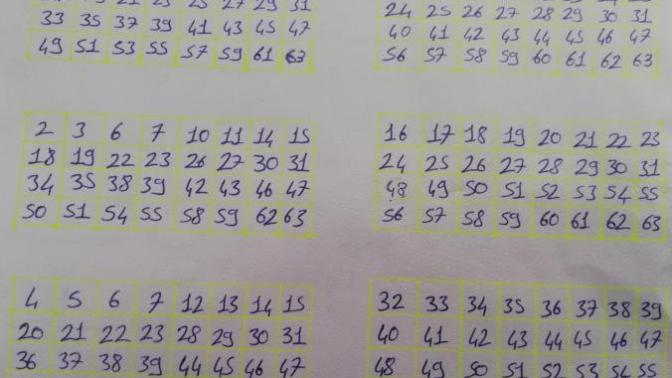 21 23 25 27 29 31
33 35 37 39 41 43 45 47
49 51 53 55 57 59 61 63
24 25 26 27 28 29 30 31
40 41 42 43 44 45 46 47
56 57 58 59 60 61 62 63
2 3 6 7 10 11 14 15
18 19 22 23 26 27 30 31
34 35 38 39 42 43 46 47
50 51 54 55 58 59 62 63
16 17 18 19 20 21 22 23
24 25 26 27 28 29 30 31
48 49 50 51 52 53 54 55
56 57 58 59 60 61 62 63
4 5 6 7 12 13 14 15
20 21 22 23 28 29 30 31
36 37 38 39 44 45 46 47
32 33 34 35 36 37 38 39
40 41 42 43 44 45 46 47
48 49 50 51 52 53 54 55